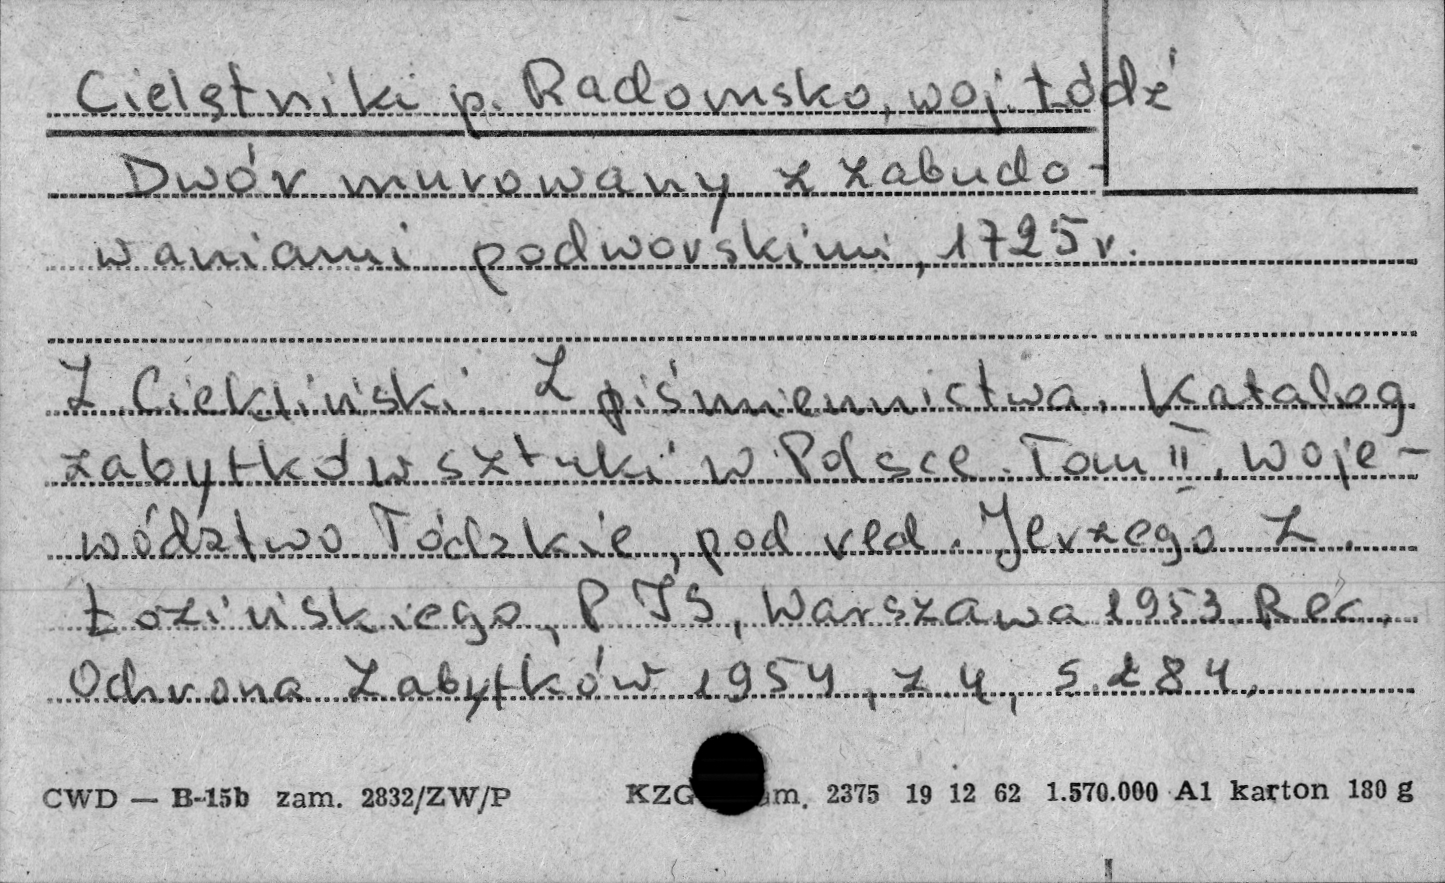 Cielętniki p. Radomsko, woj. Łódź
Dwór murowany z zabudo-
waniami podworskimi, 1725 r.
Z. Ciekliński. Z piśmiennictwa. Katalog
zabytków sztuki w Polsce. Tom II. Woje-
wództwo Łódzkie, pod red. Jerzego Z.
Łozińskiego, PIS, Warszawa 1953 Rec.
Ochrona Zabytków 1954, z. 4, s. 284.
CWD — B-15b zam. 2832/ZW/P KZG zam. 2375 19 12 62 1.570.000 A1 karton 180 g